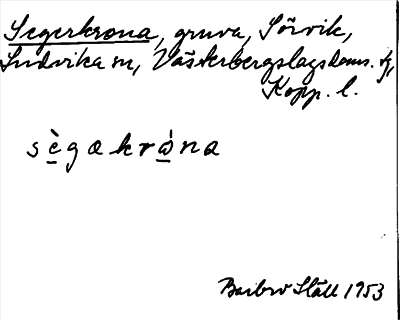 Segerkrona, gruva, Sörvik,
Ludvika sn, Västerbergslags doms. tg,
Kopp. l.
sègakróna
Barbro Ståll 1953